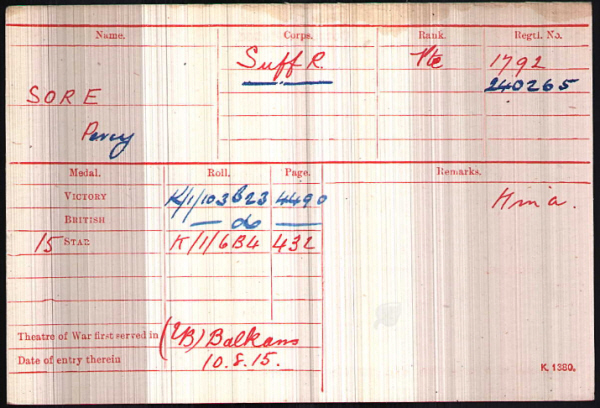 Name. Corps. Rank. Regtl. No.
Suff R. Pte 1792
240265
SORE
Percy
Medal. Roll. Page. Remarks.
VICTORY K/1/103 B23 4490
BRITISH — do —
15 STAR K/1/6B4 432
Theatre of War first served in (2B) Balkans
Date of entry therein 10.8.15.
K. 1380.